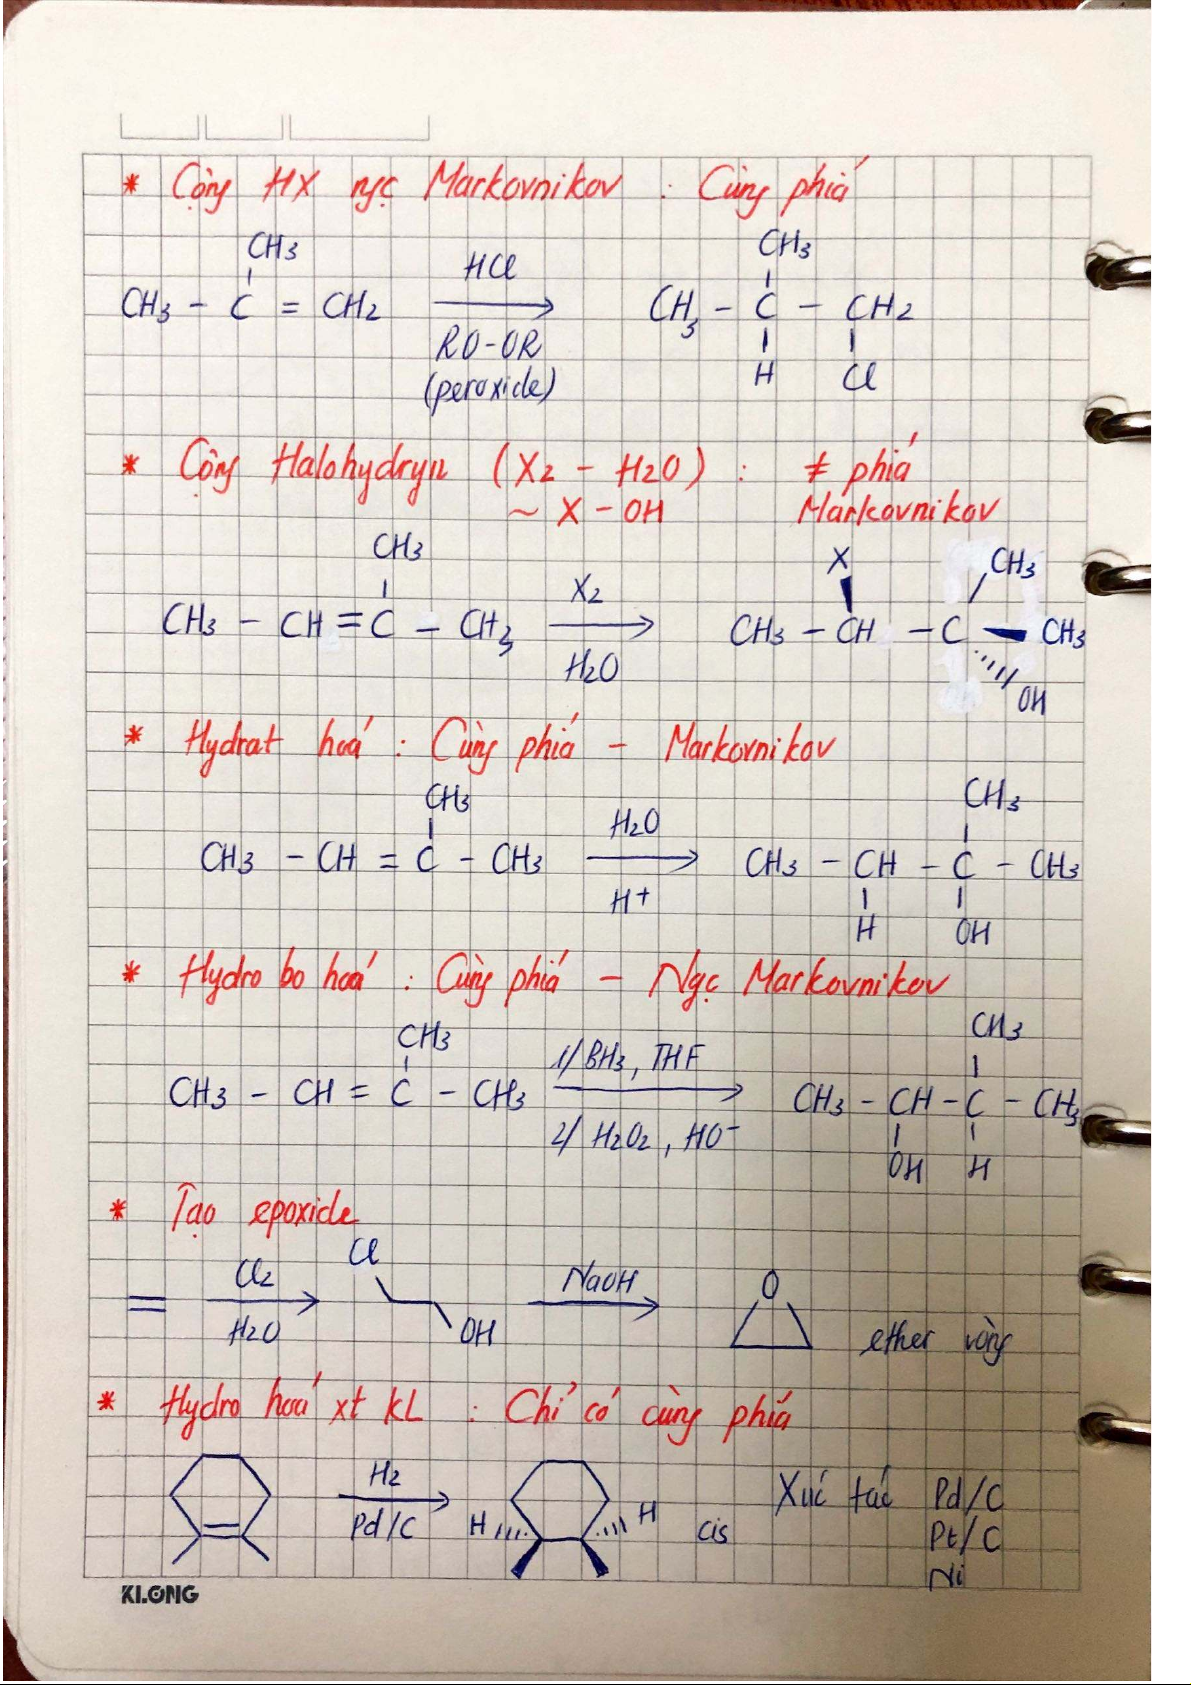 * Cộng HX ngc Markovnikov : Cùng phiá
CH3
CH3 - C = CH2
HCl
RO-OR
(peroxide)
CH3
CH3 - C - CH2
H Cl
* Cộng Halohydryn (X2 - H2O) : ≠ phiá
~ X - OH Markovnikov
CH3
CH3 - CH = C - CH3
X2
H2O
X CH3
CH3 - CH - C CH3
OH
* Hydrat hoá : Cùng phiá - Markovnikov
CH3
CH3 - CH = C - CH3
H2O
H+
CH3
CH3 - CH - C - CH3
H OH
* Hydro bo hoá : Cùng phiá - Ngc Markovnikov
CH3
CH3 - CH = C - CH3
1/ BH3, THF
2/ H2O2, HO-
CH3
CH3 - CH - C - CH3
OH H
* Tạo epoxide
= Cl2
H2O
Cl
OH
NaOH
O
ether vòng
* Hydro hoá xt KL : Chỉ có cùng phiá
H2
Pd/C
H H
cis
Xúc tác Pd/C
Pt/C
Ni
KLONG